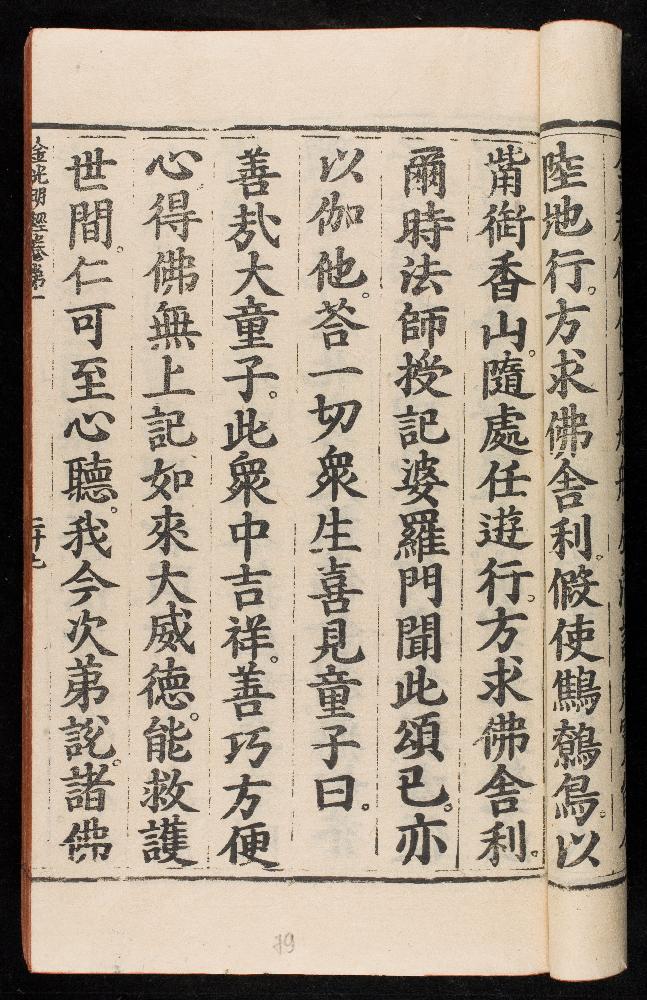 陸地行。方求佛舍利。假使鷦鷯鳥。以
觜銜香山。隨處任遊行。方求佛舍利。
爾時法師授記婆羅門聞此頌已。亦
以伽他。荅一切衆生喜見童子曰。
善㢤大童子。此衆中吉祥。善巧方便
心得佛無上記如來大威德。能救護
世間。仁可至心聽。我今次苐說。諸佛
金光明經卷第一
二十九
19